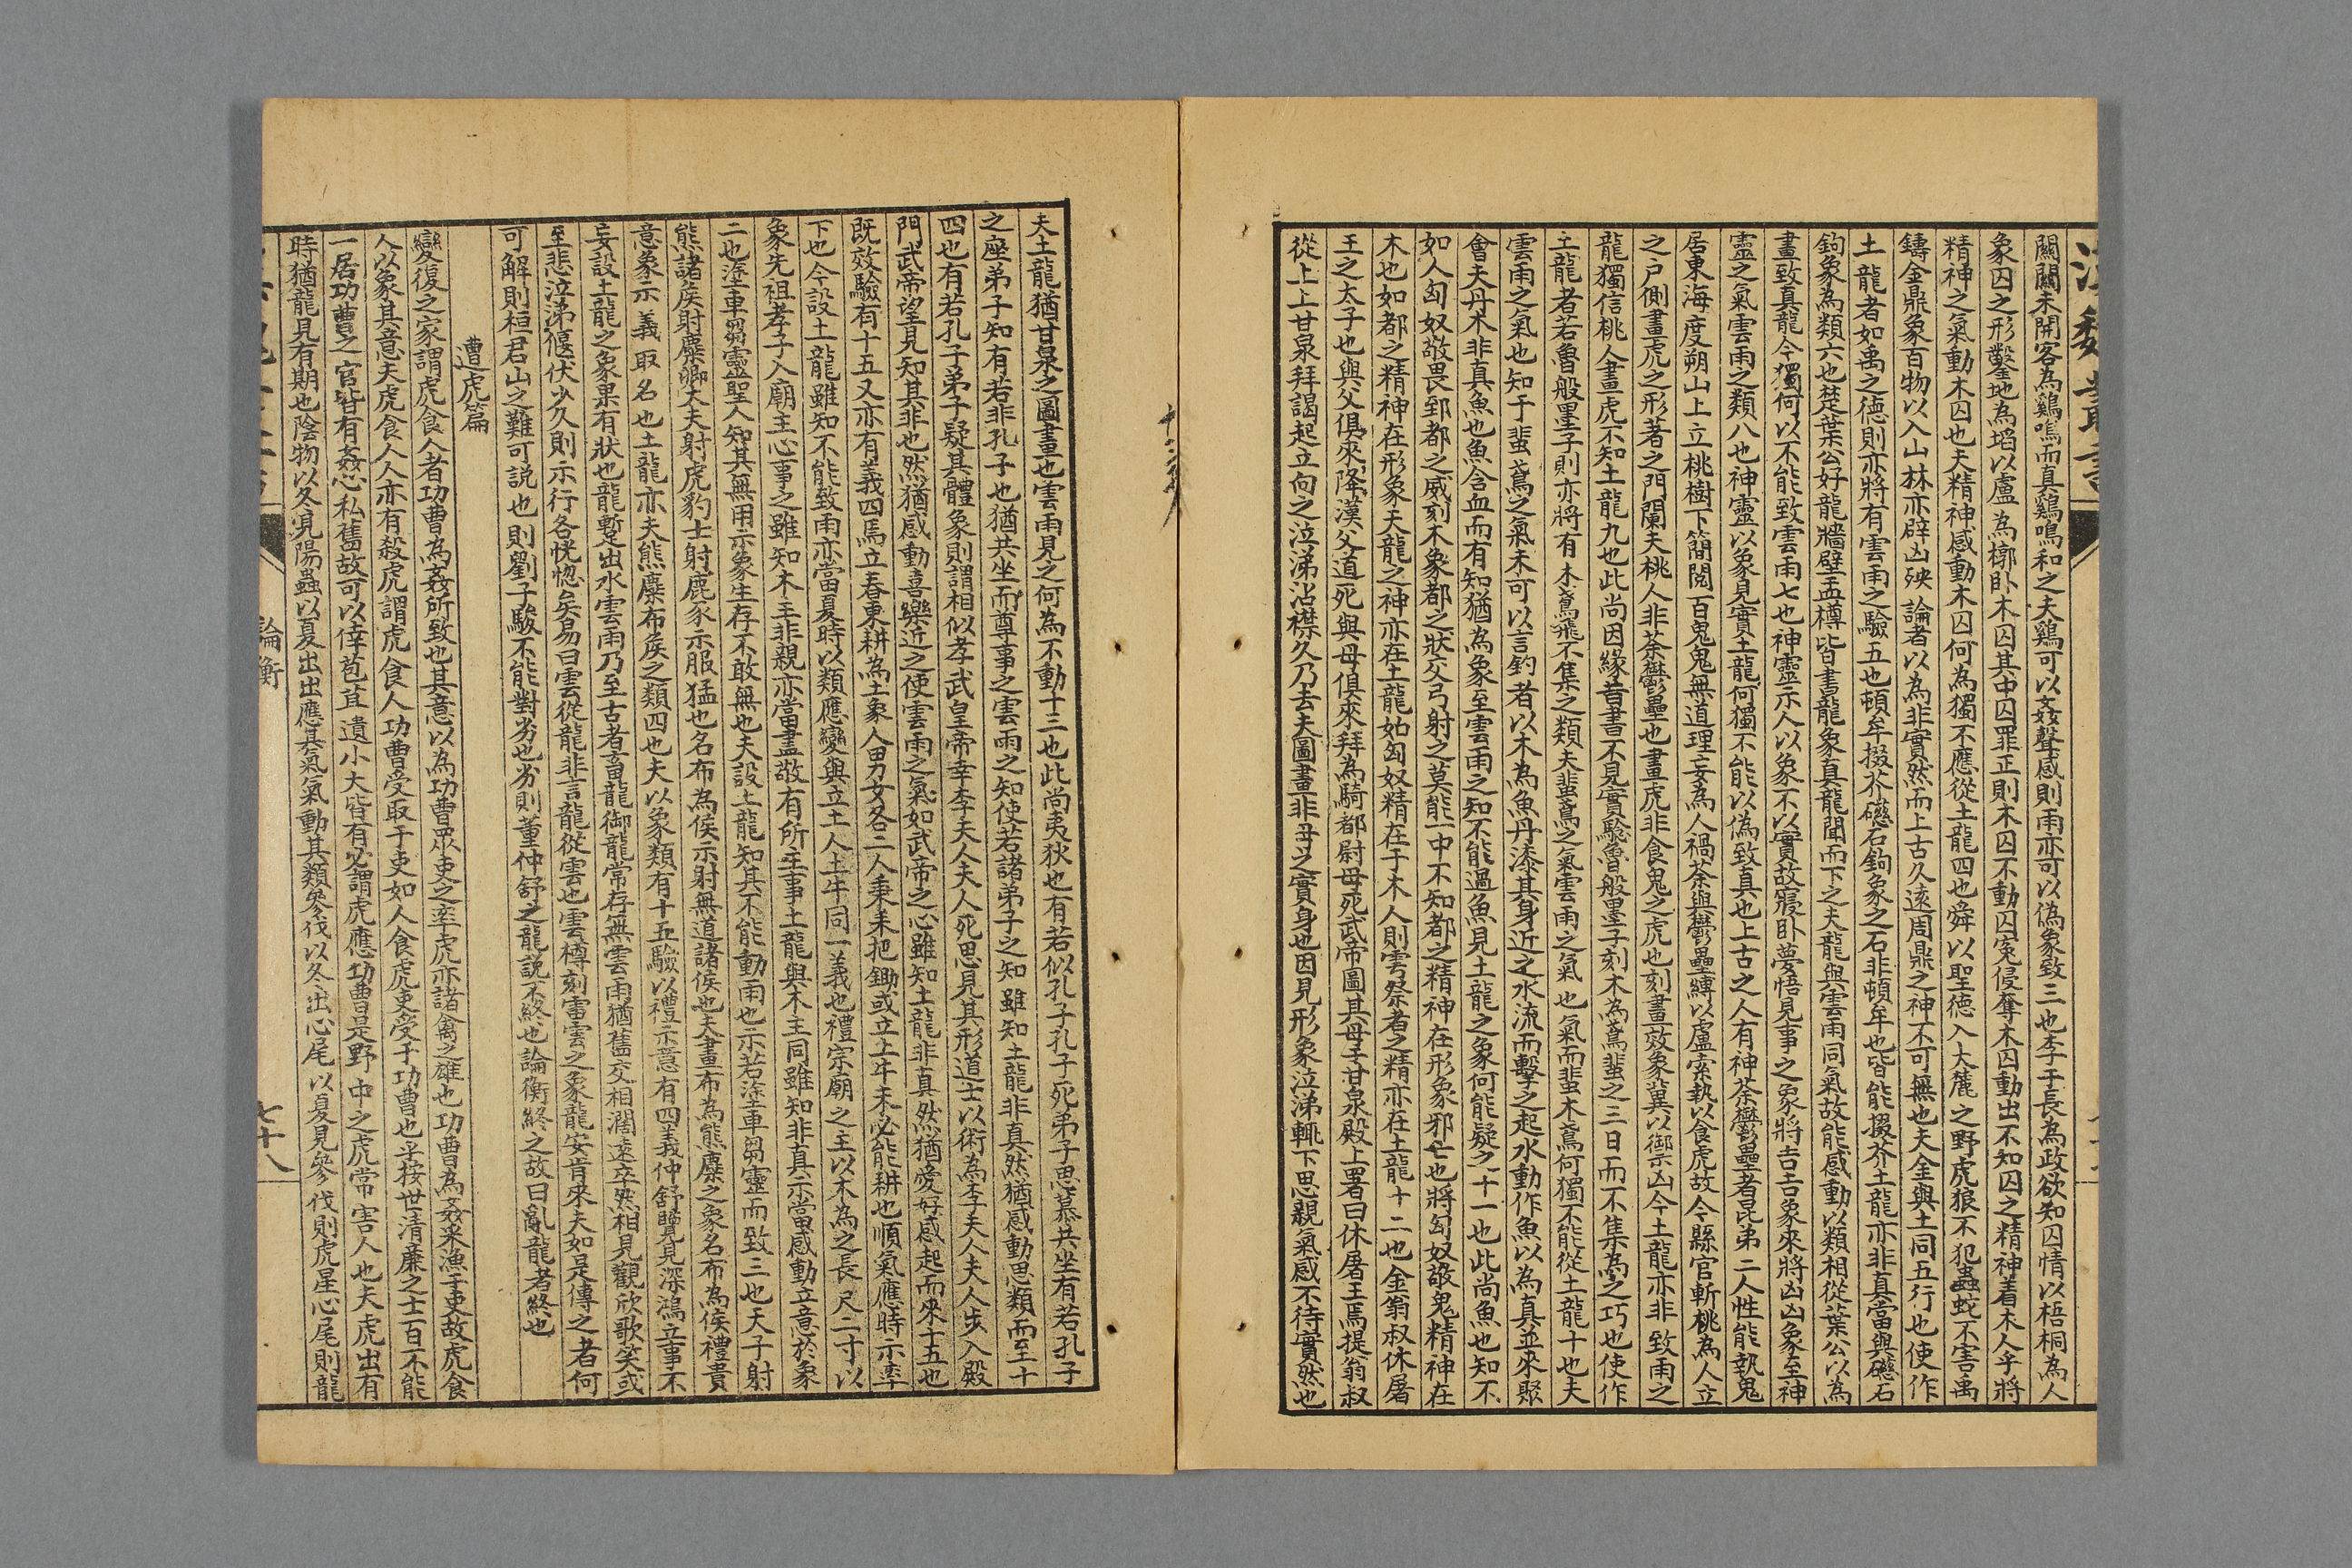 漢魏叢書
關關未開客為鷄鳴而真鷄鳴和之夫鷄可以姦聲感則雨亦可以偽象致三也李子長為政欲知囚情以梧桐為人
象囚之形鑿地為埳以盧為槨卧木囚其中囚罪正則木囚不動囚寃侵奪木囚動出不知囚之精神着木人乎將
精神之氣動木囚也夫精神感動木囚何為獨不應從土龍四也舜以聖德入大麓之野虎狼不犯蟲蛇不害禹
鑄金鼎象百物以入山林亦辟凶殃論者以為非實然而上古久遠周鼎之神不可無也夫金與土同五行也使作
土龍者如禹之德則亦將有雲雨之驗五也頓牟掇芥磁石鉤象之石非頓牟也皆能掇芥土龍亦非真當與磁石
鉤象為類六也楚葉公好龍牆壁盂樽皆畫龍象真龍聞而下之夫龍與雲雨同氣故能感動以類相從葉公以為
畫致真龍今獨何以不能致雲雨七也神靈示人以象不以實故寢卧夢悟見事之象將吉吉象來將凶凶象至神
靈之氣雲雨之類八也神靈以象見實土龍何獨不能以偽致真也上古之人有神荼鬱壘者昆弟二人性能執鬼
居東海度朔山上立桃樹下簡閱百鬼鬼無道理妄為人禍荼與鬱壘縛以盧索執以食虎故今縣官斬桃為人立
之戸側畫虎之形著之門闌夫桃人非荼鬱壘也畫虎非食鬼之虎也刻畫效象冀以禦凶今土龍亦非致雨之
龍獨信桃人畫虎不知土龍九也此尚因緣昔書不見實驗魯般墨子刻木為鳶蜚之三日而不集為之巧也使作
土龍者若魯般墨子則亦將有木鳶飛不集之類夫蜚鳶之氣雲雨之氣也氣而蜚木鳶何獨不能從土龍十也夫
雲雨之氣也知于蜚鳶之氣未可以言釣者以木為魚丹漆其身近之水流而擊之起水動作魚以為真並來聚
會夫丹木非真魚也魚含血而有知猶為象至雲雨之知不能過魚見土龍之象何能疑之十一也此尚魚也知不
如人匈奴敬畏郅都之威刻木象都之狀交弓射之莫能一中不知都之精神在形象邪亡也將匈奴敬鬼精神在
木也如都之精神在形象天龍之神亦在土龍如匈奴精在于木人則雩祭者之精亦在土龍十二也金翁叔休屠
王之太子也與父俱來降漢父道死與母俱來拜為騎都尉母死武帝圖其母于甘泉殿上署曰休屠王焉提翁叔
從上上甘泉拜謁起立向之泣涕沾襟久乃去夫圖畫非母之實身也因見形象泣涕輒下思親氣感不待實然也
夫土龍猶甘泉之圖畫也雲雨見之何為不動十三也此尚夷狄也有若似孔子孔子死弟子思慕共坐有若孔子
之座弟子知有若非孔子也猶共坐而尊事之雲雨之知使若諸弟子之知雖知土龍非真然猶感動思類而至十
四也有若孔子弟子疑其體象則謂相似孝武皇帝幸李夫人夫人死思見其形道士以術為李夫人夫人步入殿
門武帝望見知其非也然猶感動喜樂近之使雲雨之氣如武帝之心雖知土龍非真然猶愛好感起而來十五也
既效驗有十五又亦有義四焉立春東耕為土象人男女各二人秉耒把鋤或立土牛未必能耕也順氣應時示率
下也今設土龍雖知不能致雨亦當夏時以類應變與立土人土牛同一義也禮宗廟之主以木為之長尺二寸以
象先祖孝子入廟主心事之雖知木主非親亦當盡敬有所主事土龍與木主同雖知非真示當感動立意於象
二也塗車芻靈聖人知其無用示象生存不敢無也夫設土龍知其不能動雨也示若塗車芻靈而致三也天子射
熊諸矦射麋卿大夫射虎豹士射鹿豕示服猛也名布為侯示射無道諸侯也夫畫布為熊麋之象名布為侯禮貴
意象示義取名也土龍亦夫熊麋布矦之類四也夫以象類有十五驗以禮示意有四義仲舒覽見深鴻立事不
妄設土龍之象果有狀也龍蹔出水雲雨乃至古者畜龍御龍常存無雲雨猶舊交相濶遠卒然相見觀欣歌笑或
至悲泣涕偃伏少久則示行各恍惚矣易曰雲從龍非言龍從雲也雲樽刻雷雲之象龍安肯來夫如是傳之者何
可解則桓君山之難可說也則劉子駿不能對劣也劣則董仲舒之龍說不終也論衡終之故曰亂龍者終也
遭虎篇
變復之家謂虎食人者功曹為姦所致也其意以為功曹眾吏之率虎亦諸禽之雄也功曹為姦采漁于吏故虎食
人以象其意夫虎食人人亦有殺虎謂虎食人功曹受取于吏如人食虎吏受于功曹也乎按世清廉之士百不能
一居功曹之官皆有姦心私舊故可以倖苞苴遺小大皆有必謂虎應功曹是野中之虎常害人也夫虎出有
時猶龍見有期也陰物以冬見陽蟲以夏出出應其氣氣動其類參伐以冬出心尾以夏見參伐則虎星心尾則龍
論衡
七十八